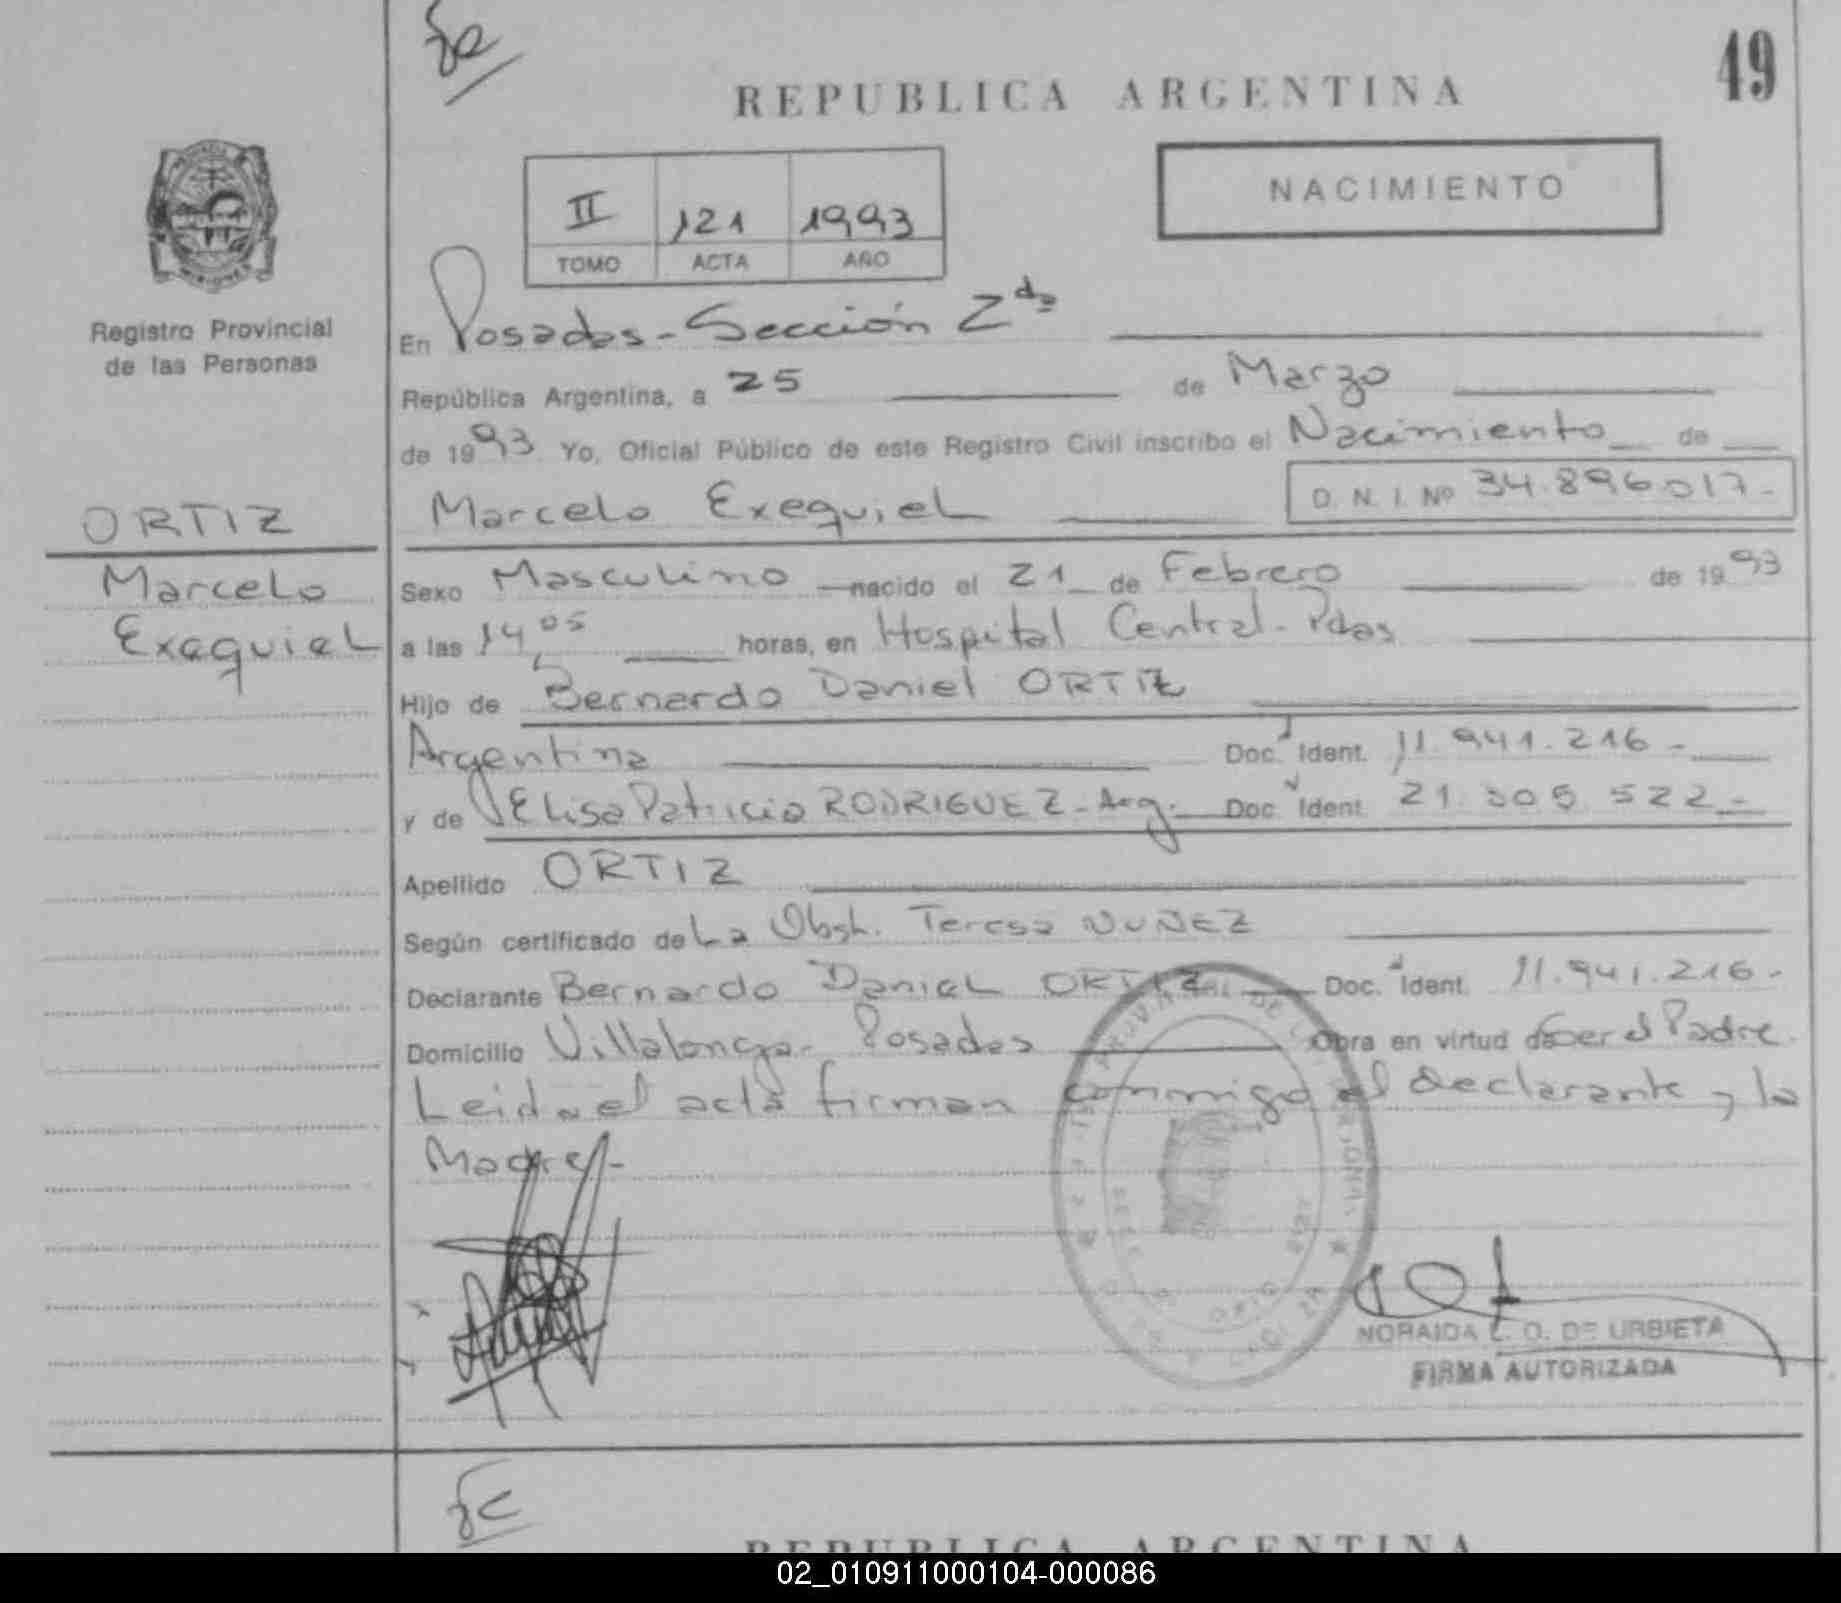 49
REPUBLICA ARGENTINA
NACIMIENTO
II 121 1993
TOMO ACTA AÑO
Registro Provincial
de las Personas
ORTIZ
Marcelo
Exequiel
En Posadas - Sección 2da
República Argentina, a 25 de Marzo
de 1993 Yo, Oficial Público de este Registro Civil inscribo el Nacimiento de
Marcelo Exequiel D. N. I. Nº 34.896.017.-
Sexo Masculino nacido el 21 de Febrero de 1993
a las 14,05 horas, en Hospital Central - Pdas.
Hijo de Bernardo Daniel ORTIZ
Argentina Doc. Ident. 11.941.216.-
y de Elisa Patricia RODRIGUEZ - Arg. Doc. Ident. 21.305.522.-
Apellido ORTIZ
Según certificado de La Obst. Teresa NUÑEZ
Declarante Bernardo Daniel ORTIZ Doc. Ident. 11.941.216.-
Domicilio Villalonga - Posadas Obra en virtud de Ser el Padre.
Leida el acta firman conmigo el declarante y la
Madre.-
NORAIDA L. O. DE URBIETA
FIRMA AUTORIZADA
REPUBLICA ARGENTINA
02_010911000104-000086